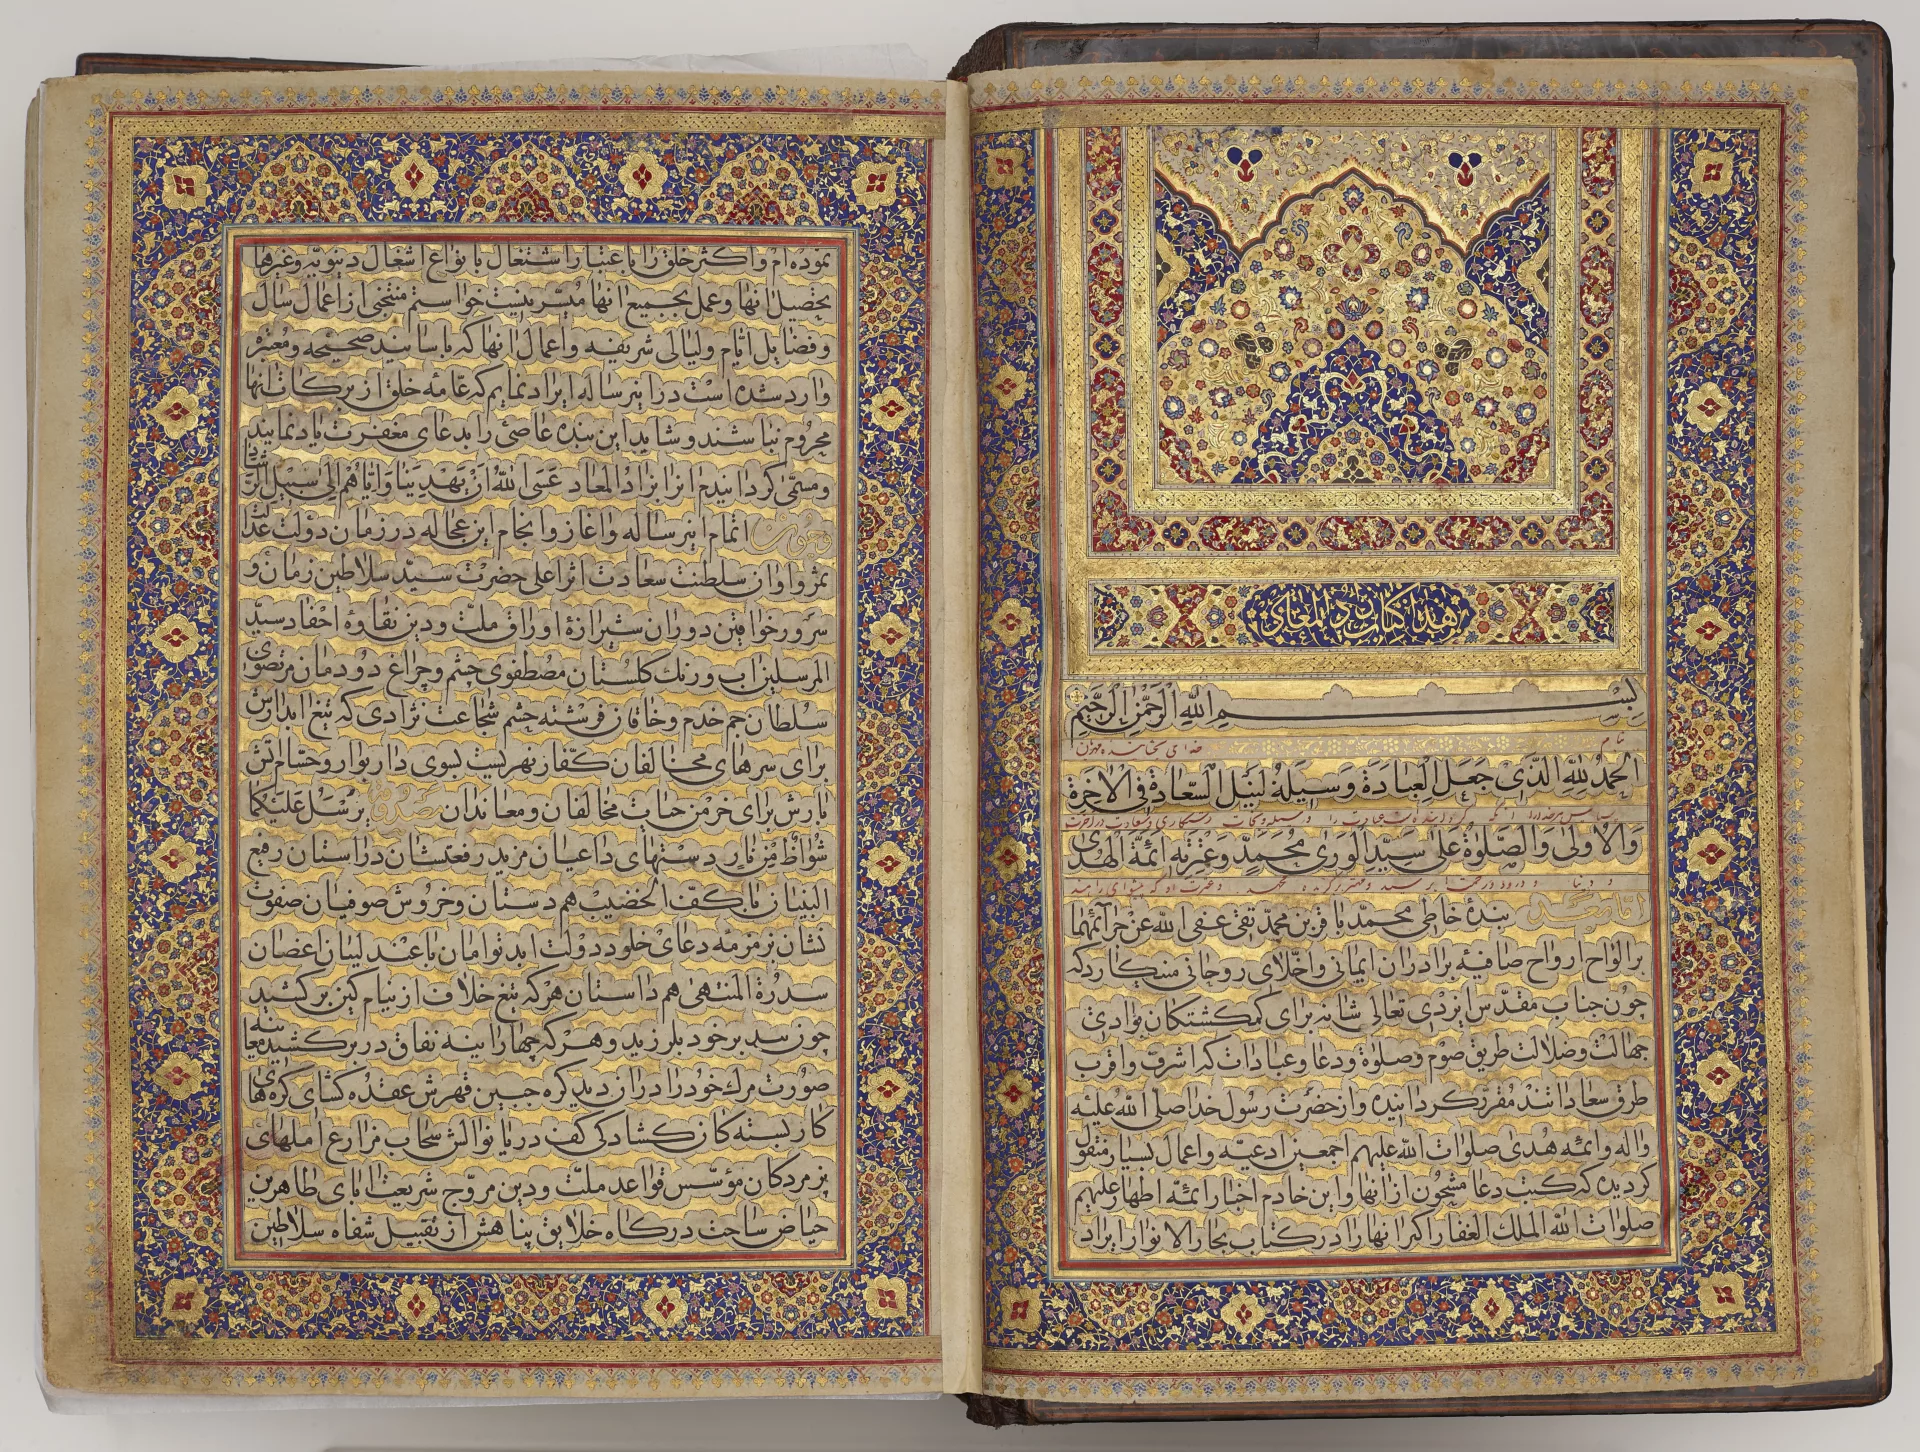 هذا کتاب زاد المعاد
بسم الله الرحمن الرحیم
بنام خدای بخشاینده مهربان
الحمد لله الذی جعل العبادة وسیلة لنیل السعادة فی الاخرة
سپاس مر خدایرا که گردانیده عبادت را رستگاری و سعادت در آخرت
والاولی والصلوة علی سید الوری محمد وعترته ائمة الهدی
و دنیا و درود و رحمت بر سید و مهتر برگزیده محمد و عترت او که پیشوای راهند
اما بعد بندهٔ خاطی محمد باقر بن محمد تقی عفی الله عن جرائمهما
بر الواح ارواح صافیهٔ برادران ایمانی واخلای روحانی مینکارد که
چون جناب مقدس ایزدی تعالی شانه برای کمکشتکان بوادی
جهالت وضلالت طریق صوم وصلوة ودعا وعبادات که اشرف واقرب
طرق سعاداتند مقرر کردانیده واز حضرت رسول خدا صلی الله علیه
واله وائمه هدی صلوات الله علیهم اجمعین ادعیه واعمال بسیار منقول
کردیده که کتب دعا مشحون از انها واین خادم اخبار ائمه اطهار علیهم
صلوات الله الملک الغفار اکثر انها را در کتاب بحار الانوار ایراد
نموده ام واکثر خلق را باعتبار اشتغال بانواع اشغال دنیویه وغیرها
تحصیل انها وعمل بجمیع انها میسر نیست خواستم منتخبی از اعمال سال
وفضایل ایام ولیالی شریفه واعمال انها که باسانید صحیحه ومعتبره
وارد شده است در این رساله ایراد نمایم که عامه خلق از برکات انها
محروم نباشند وشاید این بنده عاصی را بدعای مغفرت یاد نمایند
ومسمی کردانیدم انرا بزاد المعاد عسی الله ان یهدینا وایاهم الی سبیل الرشاد
وچون اتمام این رساله واغاز وانجام این عجاله در زمان دولت عدالت
ثمر واوان سلطنت سعادت اثر اعلی حضرت سید سلاطین زمان و
سرور خواقین دوران شیرازهٔ اوراق ملت ودین نقاوهٔ احفاد سید
المرسلین اب ورنک کلستان مصطفوی چشم وچراغ دودمان مرتضوی
سلطان جم خدم وخاقان فرشته حشم شجاعت نژادی که تیغ ابدارش
برای سرهای مخالفان کفار نهریست بسوی دار بوار وحسام اتش
بارش برای خرمن حیات مخالفان ومعاندان مصدوقهٔ یرسل علیکما
شواظ من نار دستهای داعیان مزید رفعتشان در استان رفیع
البنیان باکف الخضیب هم دستان وخروش صوفیان صفوت
نشان بزمزمه دعای خلود دولت ابد توامان با عندلیبان اغصان
سدرة المنتهی هم داستان هرکه تیغ خلاف از نیام کین برکشید
چون سد بر خود بلرزید وهرکه چهار اینه نفاق در برکشید معاینه
صورت مرک خود را دران دید کره جبین قهرش عقده کشای کره های
کار بسته کان کشادکی کف دریا نوالش سحاب مزارع املهای
پژمردکان مؤسس قواعد ملت ودین مروج شریعت ابای طاهرین
حیاض ساحت درکاه خلایق پناهش از تقبیل شفاه سلاطین